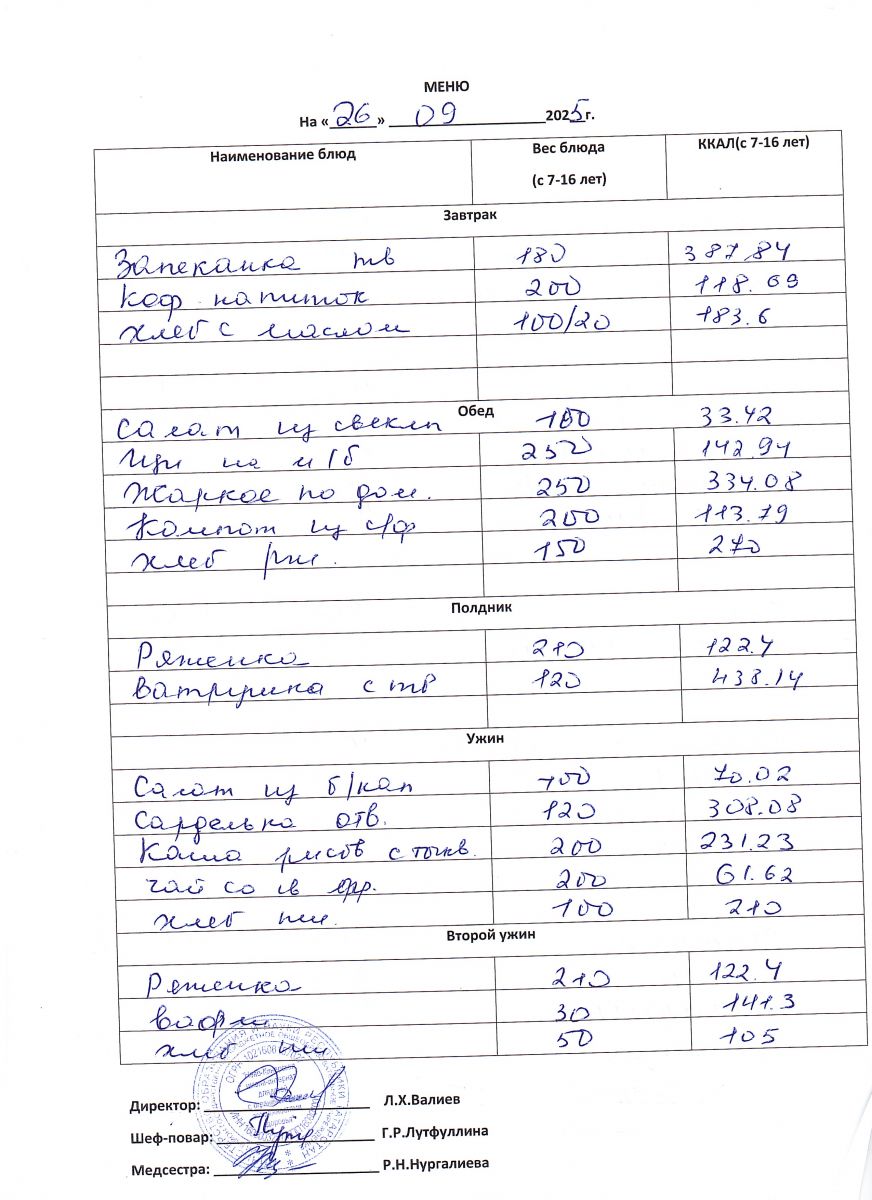 МЕНЮ
На «26» 09 2025г.
Наименование блюд Вес блюда (с 7-16 лет) ККАЛ(с 7-16 лет)
Завтрак
Запеканка тв 180 387.84
Коф напиток 200 118.69
Хлеб с маслом 100/20 183.6
Обед
Салат из свеклы 100 33.42
Щи на м/б 250 142.94
Жаркое по дом. 250 334.08
Компот из с/ф 200 113.79
Хлеб рж. 150 270
Полдник
Ряженка 210 122.4
Ватрушка с тв 120 438.14
Ужин
Салат из б/кап 100 70.02
Сарделька отв. 120 308.08
Каша рисов с тыкв. 200 231.23
чай со св фр. 200 61.62
хлеб пш. 100 210
Второй ужин
Ряженка 210 122.4
вафли 30 141.3
хлеб пш 50 105
Директор: Л.Х.Валиев
Шеф-повар: Г.Р.Лутфуллина
Медсестра: Р.Н.Нургалиева